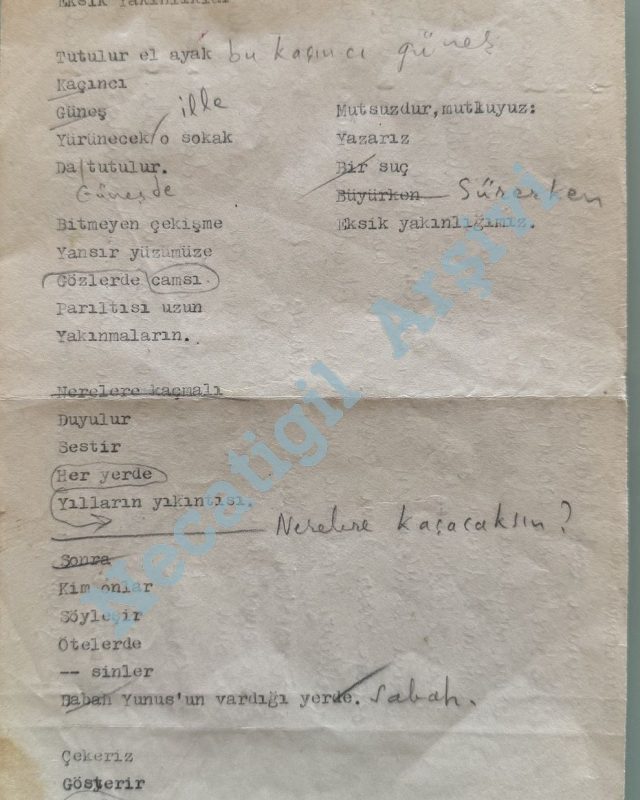 Eksik Yakınlıklar
Tutulur el ayak bu kaçıncı güneş
Kaçıncı
Güneş ille
Yürünecek o sokak
Da tutulur.
Güneşde
Bitmeyen çekişme
Yansır yüzümüze
Gözlerde camsı.
Parıltısı uzun
Yakınmaların.
Nerelere kaçmalı
Duyulur
Sestir
Her yerde
Yılların yıkıntısı.
Nerelere kaçacaksın?
Sonra
Kim onlar
Söyleşir
Ötelerde
-- sinler
Babah Yunus'un vardığı yerde. sabah.
Çekeriz
Gösterir
Mutsuzdur, mutluyuz:
Yazarız
Bir suç
Büyürken Sürerken
Eksik yakınlığımız.
Necatigil Arşivi